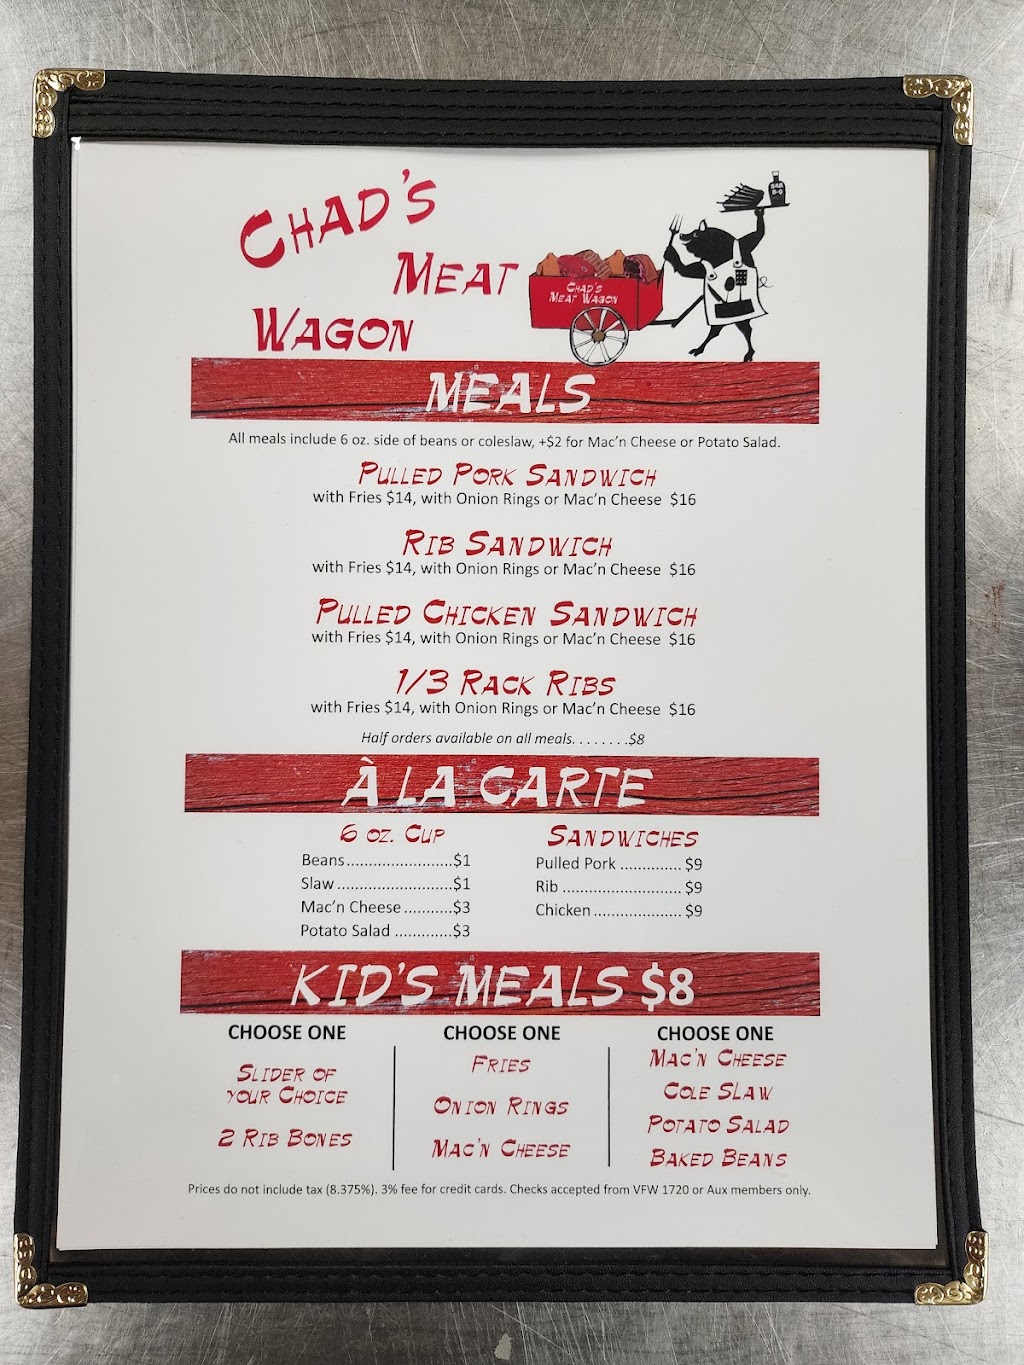 CHAD'S
MEAT
WAGON
BAR
B-Q
CHAD'S
MEAT WAGON
MEALS
All meals include 6 oz. side of beans or coleslaw, +$2 for Mac'n Cheese or Potato Salad.
PULLED PORK SANDWICH
with Fries $14, with Onion Rings or Mac'n Cheese $16
RIB SANDWICH
with Fries $14, with Onion Rings or Mac'n Cheese $16
PULLED CHICKEN SANDWICH
with Fries $14, with Onion Rings or Mac'n Cheese $16
1/3 RACK RIBS
with Fries $14, with Onion Rings or Mac'n Cheese $16
Half orders available on all meals. . . . . . . .$8
À LA CARTE
6 OZ. CUP
Beans........................$1
Slaw..........................$1
Mac'n Cheese...........$3
Potato Salad .............$3
SANDWICHES
Pulled Pork .............. $9
Rib ........................... $9
Chicken.................... $9
KID'S MEALS $8
CHOOSE ONE
SLIDER OF
YOUR CHOICE
2 RIB BONES
CHOOSE ONE
FRIES
ONION RINGS
MAC'N CHEESE
CHOOSE ONE
MAC'N CHEESE
COLE SLAW
POTATO SALAD
BAKED BEANS
Prices do not include tax (8.375%). 3% fee for credit cards. Checks accepted from VFW 1720 or Aux members only.